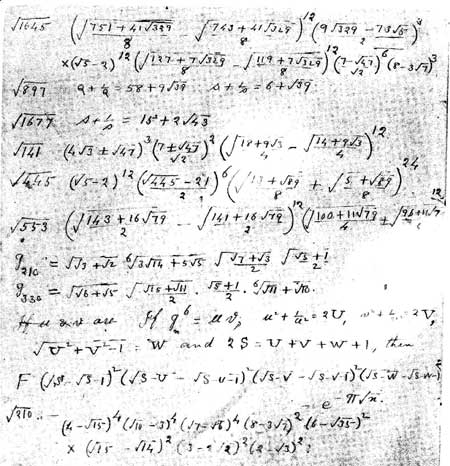 √1645 (√(751+41√329)/8 − √(743+41√329)/8)^12 (9√329 − 73√5)/2)^3
×(√5−2)^12 (√(127+7√329)/8 − √(119+7√329)/8)^12 ((7−√47)/√2)^6 (8−3√7)^3
√897 a+1/a = 58+9√39 s+1/s = 6+√39
√1677 s+1/s = 15+2√43
√141 (4√3±√47)^3 ((7±√47)/√2)^2 (√(18+9√3)/4 − √(14+9√3)/4)^12
√445 (√5−2)^12 ((√445−21)/2)^6 (√(13+√89)/8 + √(5+√89)/8)^24
√553 (√(143+16√79)/2 − √(141+16√79)/2)^12 (√(100+11√79)/4 + √(96+11√79)/4)^12
g_210 = √(√3+√2) ⁶√(3√14+5√5) √(√7+√3)/2 √(√5+1)/2
g_330 = √(√6+√5) √(√15+√11)/2 · (√5+1)/2 · ⁶√(√11+√10).
If g^6 = uv, u²+1/u² = 2U, v²+1/v² = 2V,
√(U²+V²−1) = W and 2S = U+V+W+1, then
F (√S − √S−1)^2 (√S−U − √S−U−1)^2 (√S−V − √S−V−1)^2 (√S−W − √S−W−1)^2
e^−π√n.
√210 – (4−√15)^4 (√10−3)^4 (√7−√6)^4 (8−3√7)^2 (6−√35)^2
× (√15−√14)^2 (3−2√2)^2 (2−√3)^2;